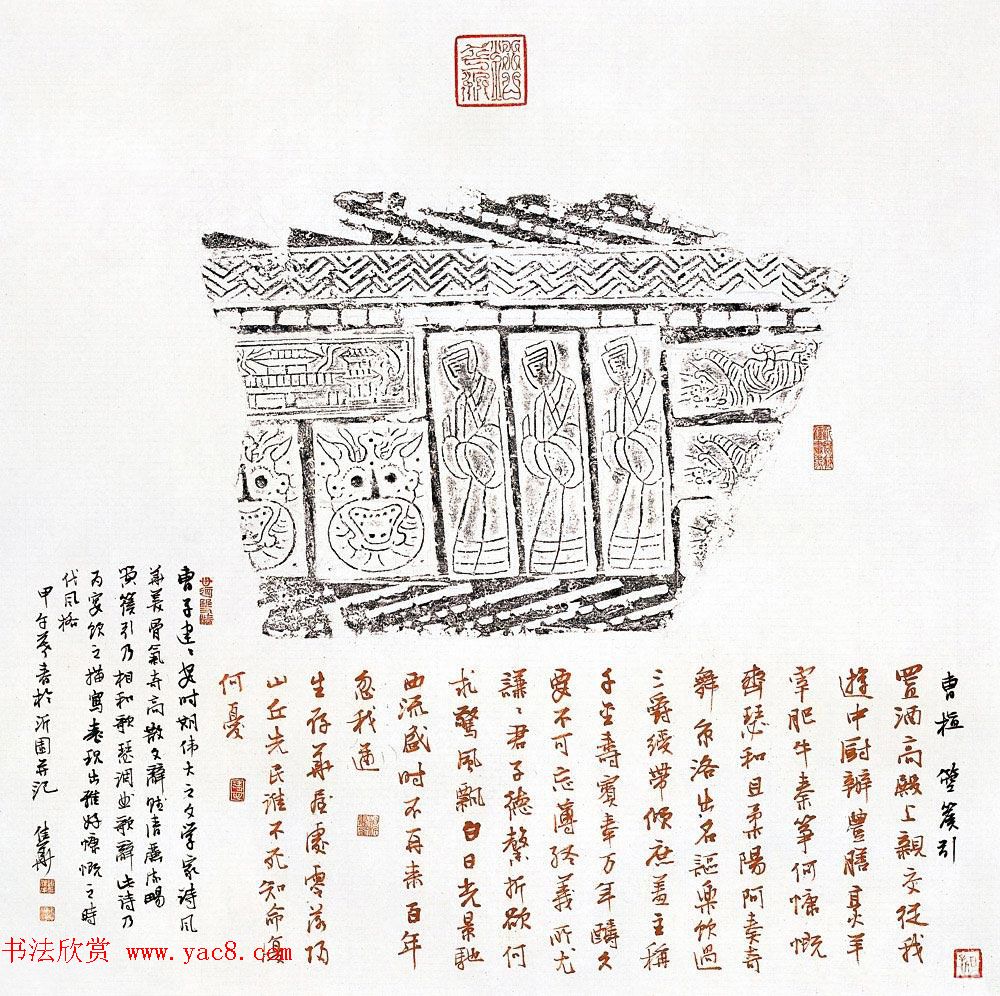 曹植 箜篌引
置酒高殿上親交從我
遊中厨辦豐膳烹羊
宰肥牛秦筝何慷慨
齊瑟和且柔陽阿奏奇
舞京洛出名謳樂飲過
三爵緩帶傾庶羞主稱
千金壽賓奉万年酬久
要不可忘薄終義所尤
謙〻君子德磬折欲何
求驚風飄白日光景馳
西流盛时不再来百年
忽我遒
生存華屋處零落归
山丘先民谁不死知命復
何憂
曹子建建安时期伟大之文学家诗风
華美骨氣奇高散文辭賦清麗流暢
箜篌引乃相和歌瑟调曲歌辭此诗乃
为宴饮之描寫表现出雅好慷慨之時
代风格
甲午冬書於沂園并记 佳華
书法欣赏 www.yac8.com